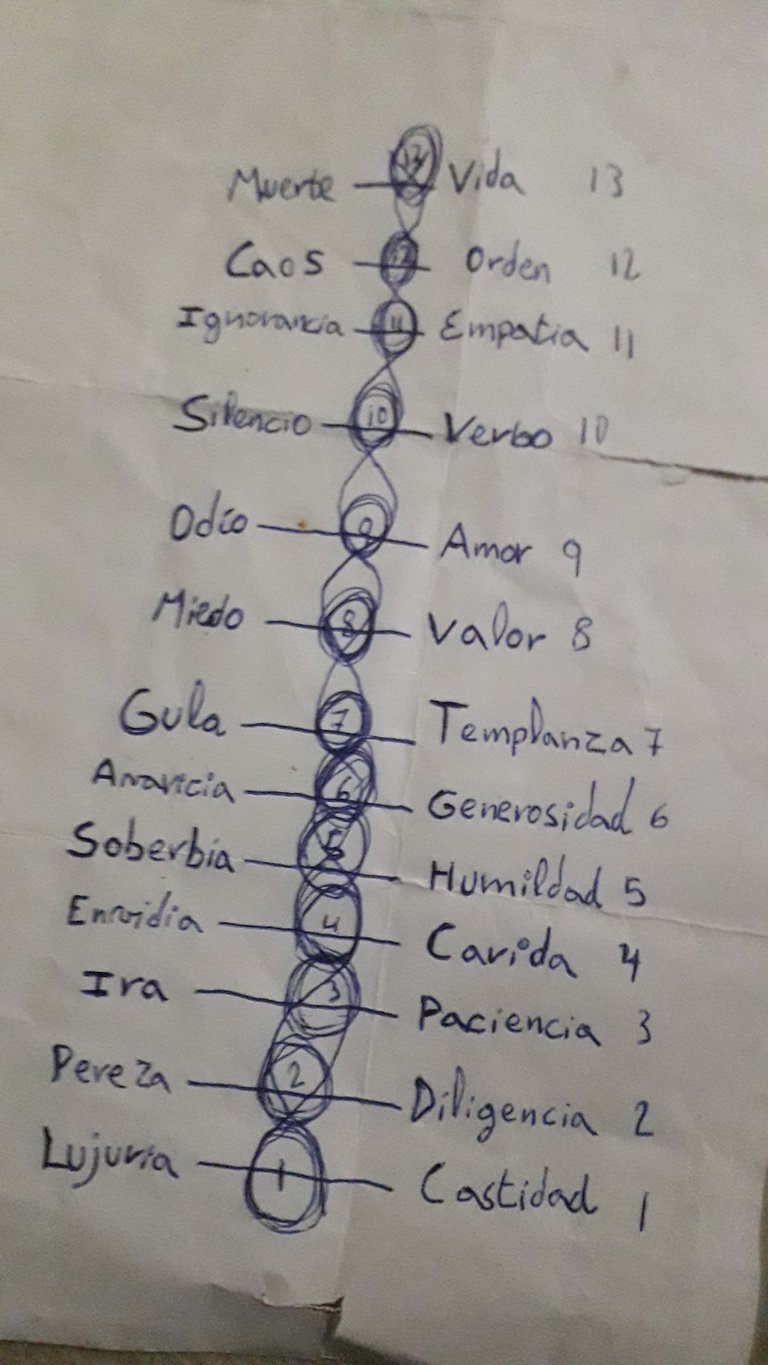 Muerte 13 Vida 13
Caos 12 Orden 12
Ignorancia 11 Empatia 11
Silencio 10 Verbo 10
Odio 9 Amor 9
Miedo 8 Valor 8
Gula 7 Templanza 7
Avaricia 6 Generosidad 6
Soberbia 5 Humildad 5
Envidia 4 Carida 4
Ira 3 Paciencia 3
Pereza 2 Diligencia 2
Lujuria 1 Castidad 1